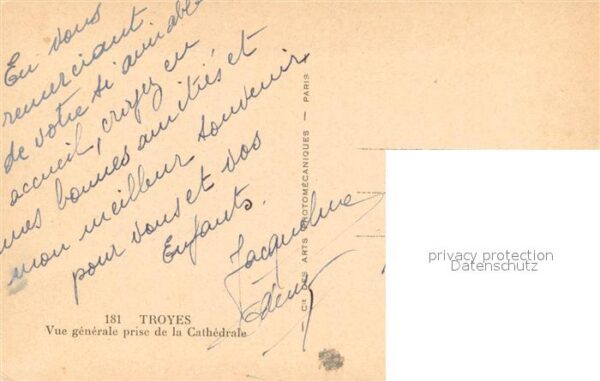 En vous
remerciant
de votre si aimable
accueil, croyez en
mes bonnes amitiés et
mon meilleur souvenir
pour vous et vos
Enfants.
Jacqueline
181 TROYES
Vue générale prise de la Cathédrale
Cie DES ARTS PHOTOMÉCANIQUES — PARIS
privacy protection
Datenschutz